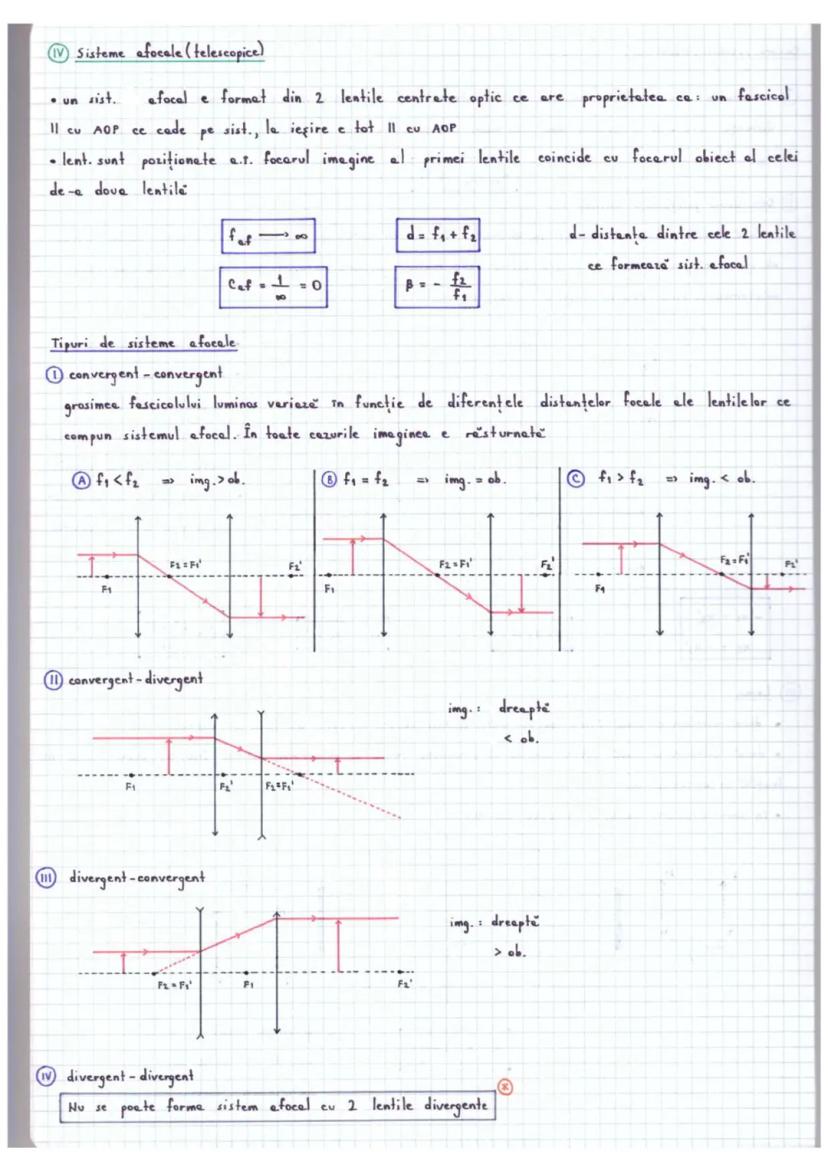 IV Sisteme afocale (telescopice)
• un sist. afocal e format din 2 lentile centrate optic ce are proprietatea ca: un fascicol
|| cu AOP ce cade pe sist., la ieșire e tot || cu AOP
• lent. sunt poziționate a.î. focarul imagine al primei lentile coincide cu focarul obiect al celei
de-a doua lentilă
f_af → ∞
d = f₁ + f₂
d- distanța dintre cele 2 lentile
ce formează sist. afocal
C_af = 1/∞ = 0
β = - f₂/f₁
Tipuri de sisteme afocale
I convergent - convergent
grosimea fascicolului luminos variază în funcție de diferențele distanțelor focale ale lentilelor ce
compun sistemul afocal. În toate cazurile imaginea e răsturnată
A f₁ < f₂ => img. > ob.
B f₁ = f₂ => img. = ob.
C f₁ > f₂ => img. < ob.
F₁ F₂=F₁' F₂'
F₁ F₂=F₁' F₂'
F₁ F₂=F₁' F₂'
II convergent - divergent
img.: dreaptă
< ob.
F₁ F₂' F₂=F₁'
III divergent - convergent
img.: dreaptă
> ob.
F₂=F₁' F₁ F₂'
IV divergent - divergent
Nu se poate forma sistem afocal cu 2 lentile divergente *